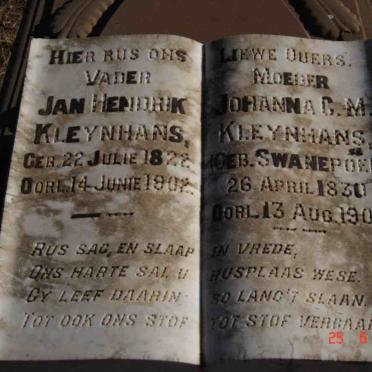 HIER RUS ONS LIEWE OUERS.
VADER
JAN HENDRIK
KLEYNHANS,
GEB. 22 JULIE 1822
OORL. 14 JUNIE 1902.
MOEDER
JOHANNA C. M.
KLEYNHANS,
(GEB. SWANEPOEL
26 APRIL 1830
OORL. 13 AUG. 190
RUS SAG, EN SLAAP IN VREDE,
ONS HARTE SAL U RUSPLAAS WESE.
GY LEEF DAARIN SO LANG'T SLAAN,
TOT OOK ONS STOF TOT STOF VERGAAN
25 6